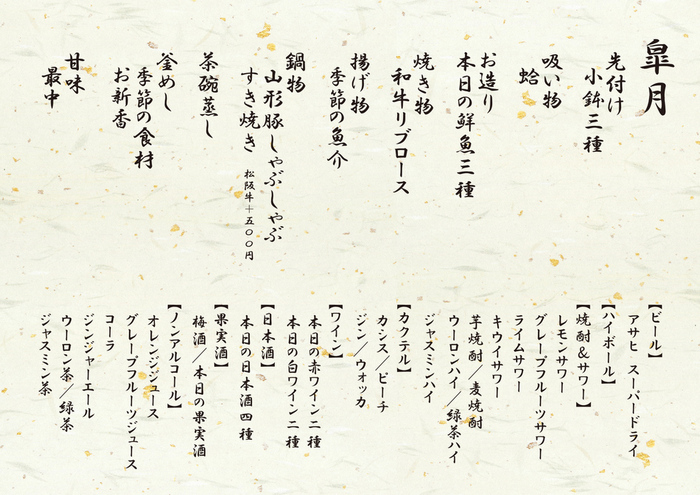 皐月
先付け
小鉢三種
吸い物
蛤
お造り
本日の鮮魚三種
焼き物
和牛リブロース
揚げ物
季節の魚介
鍋物
山形豚しゃぶしゃぶ
すき焼き 松阪牛+五〇〇円
茶碗蒸し
釜めし
季節の食材
お新香
甘味
最中
【ビール】
アサヒ スーパードライ
【ハイボール】
【焼酎&サワー】
レモンサワー
グレープフルーツサワー
ライムサワー
キウイサワー
芋焼酎/麦焼酎
ウーロンハイ/緑茶ハイ
ジャスミンハイ
【カクテル】
カシス/ピーチ
ジン/ウォッカ
【ワイン】
本日の赤ワイン二種
本日の白ワイン二種
【日本酒】
本日の日本酒四種
【果実酒】
梅酒/本日の果実酒
【ノンアルコール】
オレンジジュース
グレープフルーツジュース
コーラ
ジンジャーエール
ウーロン茶/緑茶
ジャスミン茶